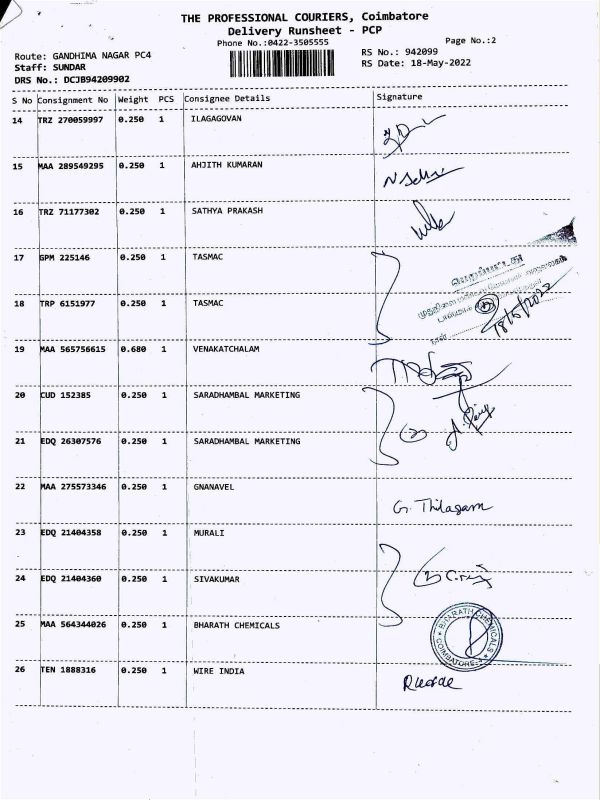 THE PROFESSIONAL COURIERS, Coimbatore
Delivery Runsheet - PCP
Phone No.:0422-3505555
Page No.:2
Route: GANDHIMA NAGAR PC4
RS No.: 942099
Staff: SUNDAR
RS Date: 18-May-2022
DRS No.: DCJB94209902
S No Consignment No Weight PCS Consignee Details Signature
14 TRZ 270059997 0.250 1 ILAGAGOVAN
15 MAA 289549295 0.250 1 AHJITH KUMARAN
16 TRZ 71177302 0.250 1 SATHYA PRAKASH
17 GPM 225146 0.250 1 TASMAC
18 TRP 6151977 0.250 1 TASMAC
18/5/2022
19 MAA 565756615 0.680 1 VENAKATCHALAM
20 CUD 152385 0.250 1 SARADHAMBAL MARKETING
21 EDQ 26307576 0.250 1 SARADHAMBAL MARKETING
22 MAA 275573346 0.250 1 GNANAVEL
G. Thilagam
23 EDQ 21404358 0.250 1 MURALI
24 EDQ 21404360 0.250 1 SIVAKUMAR
25 MAA 564344026 0.250 1 BHARATH CHEMICALS
BHARATH CHEMICALS
COIMBATORE
26 TEN 1888316 0.250 1 WIRE INDIA